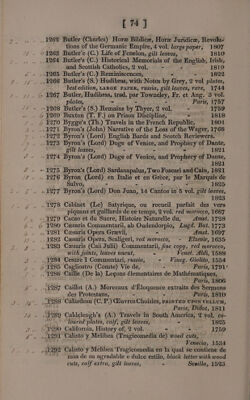 [ 74 ]
1262 Butler (Charles) Horæ Biblicæ, Horæ Juridicæ, Revolu-
tions of the Germanic Empire, 4 vol. large paper, 1807
1263 Butler's (C.) Life of Fenelon, gilt leaves, 1810
1264 Butler's (C.) Historical Memorials of the English, Irish,
and Scottish Catholics, 2 vol. 1819
1265 Butler's (C.) Reminiscences, 1822
1266 Butler's (S.) Hudibras, with Notes by Grey, 2 vol. plates,
best edition, LARGE PAPER, russia, gilt leaves, rare, 1744
1267 Butler, Hudibras, trad. par Townley, Fr. et Ang. 3 vol.
plates, Paris, 1757
1268 Butler's (S.) Remains by Thyer, 2 vol. 1759
1269 Buxton (T. F.) on Prison Discipline, 1818
1270 Bygge's (Th.) Travels in the French Republic, 1801
1271 Byron's (John) Narrative of the Loss of the Wager, 1768
1272 Byron's (Lord) English Bards and Scotch Reviewers.
1273 Byron's (Lord) Doge of Venice, and Prophecy of Dante,
gilt leaves, 1821
1274 Byron's (Lord) Doge of Venice, and Prophecy of Dante,
1821
1275 Byron's (Lord) Sardanapalus, Two Foscari and Cain, 1821
1276 Byron (Lord) en Italie et en Grèce, par le Marquis de
Salvo, 1825
1277 Byron's (Lord) Don Juan, 14 Cantos in 5 vol. gilt leaves,
1823
1278 Cabinet (Le) Satyrique, ou recueil parfait des vers
piquans et gaillards de ce temps, 2 vol. red morocco, 1667
1279 Cacao et du Sucre, Histoire Naturelle du, Amst. 1720
1280 Cæsaris Commentarii, ab Oudendorpio, Lugd. Bat. 1773
1281 Cæsaris Opera Gravii, Amst. 1697
1282 Cæsaris Opera, Scaligeri, red morocco, Elzevir, 1635
1283 Cæsaris (Caii Julii) Commentarii, fine copy, red morocco,
with joints, leaves uncut, Venet. Aldi, 1588
1284 Cesare I Commentari, russia, Vineg. Giolito, 1554
1285 Cagliostro (Comte) Vie de, Paris, 1791
1286 Caille (De la) Leçons élémentaires de Mathématiques,
Paris, 1806
1287 Caillot (A.) Morceaux d'Eloquence extraits des Sermons
des Protestans, Paris, 1810
1288 Cailhadeau (C. P.) Œuvres Choisies, PRINTED UPON VELLUM,
Paris, Didot, 1811
1289 Caldcleugh's (A.) Travels in South America, 2 vol.
coloured plates, calf, gilt leaves, 1825
1290 California, History of, 2 vol. 1759
1291 Calisto y Melibea (Tragicomedia de) wood cuts,
Venecia, 1534
1292 Calisto y Melibea Tragicomedia en la qual se contiene de
mas de su agradable e dulce estilo, black letter with wood
cuts, calf extra, gilt leaves, Sevilla, 1523